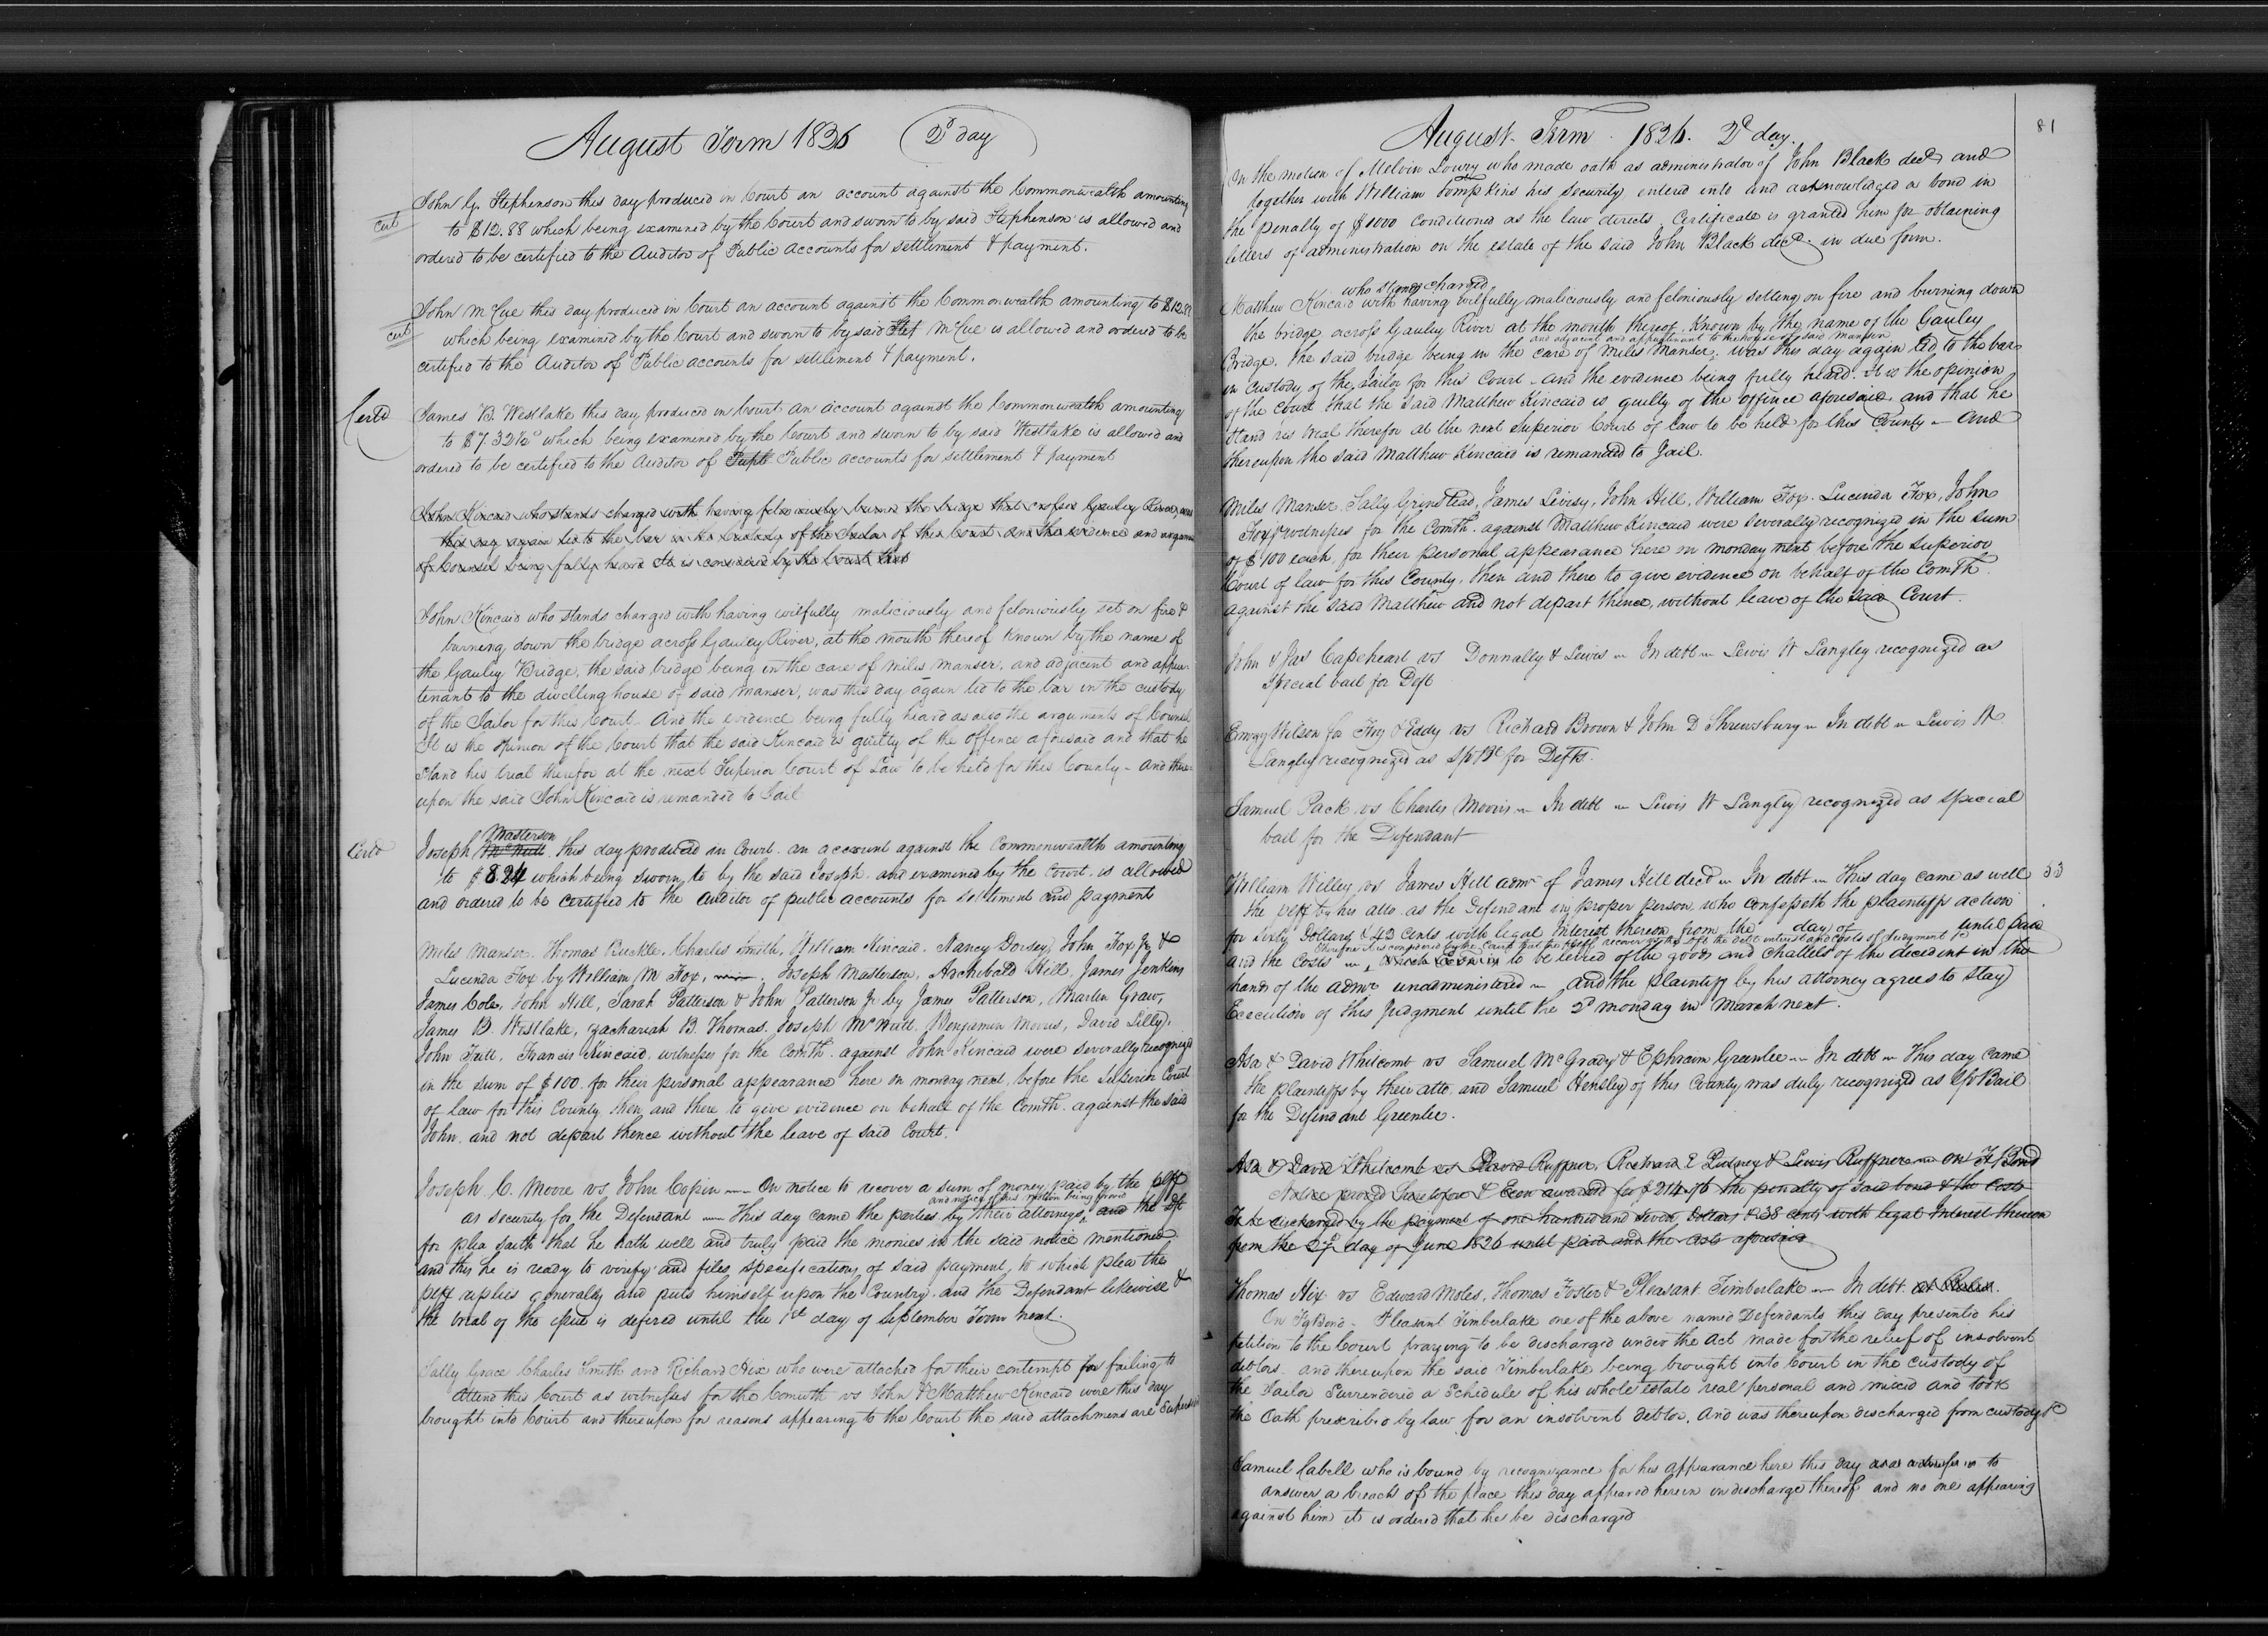 August Term 1826 2d day
John G. Stephenson this day produced in Court an account against the Commonwealth amounting
cert
to $12.88 which being examined by the Court and sworn to by said Stephenson is allowed and
ordered to be certified to the Auditor of Public accounts for settlement & payment.
John McCue this day produced in Court an account against the Commonwealth amounting to $12.88
cert
which being examined by the Court and sworn to by said Stef McCue is allowed and ordered to be
certified to the Auditor of Public accounts for settlement & payment.
Certd
James B. Westlake this day produced in Court an account against the Commonwealth amounting
to $7.32½ which being examined by the Court and sworn to by said Westlake is allowed and
ordered to be certified to the Auditor of Public accounts for settlement & payment
John Kincaid who stands charged with having feloniously burned the bridge that crosses Gauley River, was
this day again led to the bar in the custody of the Jailor of this Court and the evidence and argument
of Counsel being fully heard It is considered by the Court that
John Kincaid who stands charged with having wilfully maliciously and feloniously set on fire &
burning down the bridge across Gauley River, at the mouth thereof known by the name of
the Gauley Bridge, the said bridge being in the care of Miles Manser, and adjacent and appur-
tenant to the dwelling house of said Manser, was this day again led to the bar in the custody
of the Jailor for this Court. And the evidence being fully heard as also the arguments of Counsel
It is the opinion of the Court that the said Kincaid is guilty of the offence aforesaid and that he
stand his trial therefor at the next Superior Court of Law to be held for this County - And there-
upon the said John Kincaid is remanded to Jail
Certd
Masterson
Joseph McNutt this day produced in Court an account against the Commonwealth amounting
to $8.84 which being sworn to by the said Joseph and examined by the Court, is allowed
and ordered to be certified to the Auditor of public accounts for settlement and payment
Miles Manser, Thomas Buckle, Charles Smith, William Kincaid, Nancy Dorsey, John Fox Jr &
Lucinda Fox by William M Fox, Joseph Masterson, Archibald Hill, James Jenkins
James Cole, John Hill, Sarah Patterson & John Patterson Jr by James Patterson, Martin Graw,
James B. Westlake, Zachariah B. Thomas, Joseph McNutt, Benjamin Morris, David Lilly,
John Tritt, Francis Kincaid, witnesses for the Comth. against John Kincaid were severally recognized
in the sum of $100 for their personal appearance here on monday next, before the Superior Court
of law for this County then and there to give evidence on behalf of the Comth. against the said
John, and not depart thence without the leave of said Court.
Joseph C. Moore vs John Copin — On notice to recover a sum of money paid by the plff
and notice of his motion being proved
as security for the Defendant — This day came the parties by their attorneys, and the dft
for plea saith that he hath well and truly paid the monies in the said notice mentioned
and this he is ready to verify and files specifications of said payment, to which plea the
plff replies generally and puts himself upon the Country and the Defendant likewise &
the trial of the issue is defered until the 1st day of September Term next.
Sally Grace Charles Smith and Richard Hix who were attached for their contempt for failing to
attend this Court as witnesses for the Comwth vs John & Matthew Kincaid were this day
brought into Court and thereupon for reasons appearing to the Court the said attachments are
August Term 1826. 2d day.
81
On the motion of Melvin Lowry who made oath as administrator of John Black decd and
together with William Tompkins his security, entered into and acknowledged a bond in
the penalty of $1000 conditioned as the law directs, Certificate is granted him for obtaining
letters of administration on the estate of the said John Black decd. in due form.
who stands charged
Matthew Kincaid with having wilfully maliciously and feloniously setting on fire and burning down
the bridge across Gauley River at the mouth thereof, known by the name of the Gauley
and adjacent and appurtenant to the house of said Manser
Bridge. the said bridge being in the care of Miles Manser, was this day again led to the bar
in custody of the Jailor for this Court - and the evidence being fully heard. It is the opinion
of the Court that the said Matthew Kincaid is guilty of the offence aforesaid and that he
stand his trial therefor at the next Superior Court of law to be held for this County - and
thereupon the said Matthew Kincaid is remanded to Jail.
Miles Manser, Sally Grinstead, James Livesy, John Hill, William Fox, Lucinda Fox, John
Fox, witnesses for the Comth. against Matthew Kincaid were severally recognized in the sum
of $100 each, for their personal appearance here on monday next before the Superior
Court of law for this County, then and there to give evidence on behalf of the Comth
against the said Matthew and not depart thence, without leave of the said Court.
John & Jas Capeheart vs Donnally & Lewis — In debt — Lewis W Langley recognized as
Special bail for Deft
Emory Wilson for Eady vs Richard Brown & John D Shrewsbury — In debt — Lewis W
Langley recognized as Sp Bl for Defts.
Samuel Pack vs Charles Morris — In debt — Lewis W Langley recognized as special
bail for the Defendant
William Willey vs James Hill admr of James Hill decd — In debt — This day came as well
53
the plff by his atto. as the Defendant in proper person, who confesseth the plaintiffs action
for sixty Dollars & 43 Cents with legal Interest thereon from the day of until paid
Therefore it is considered by the Court that the plff recover agt the dft the debt interest and costs of Judgment &c
and the costs — to be levied of the goods and chattels of the decedent in the
hands of the admr unadministered — And the plaintiff by his attorney agrees to stay
Execution of this Judgment until the 2d monday in March next.
Asa & David Whitcomb vs Samuel McGrady & Ephraim Greenlee — In debt — This day came
the plaintiffs by their atto. and Samuel Hensley of this County was duly recognized as Sp Bail
for the Defendant Greenlee.
Asa & David Whitcomb vs David Ruffner, Richard E Putney & Lewis Ruffner — on F Bond
Notice proved heretofore & Exon awarded for $214.76 the penalty of said bond & the Costs
To be discharged by the payment of one hundred and seven Dollars & 38 cents with legal Interest thereon
from the day of June 1826 until paid and the costs aforesaid
Thomas Hix vs Edward Moles, Thomas Foster & Pleasant Timberlake — In debt.
On Fg Bond - Pleasant Timberlake one of the above named Defendants this day presented his
petition to the Court praying to be discharged under the Act made for the relief of insolvent
debtors, and thereupon the said Timberlake being brought into Court in the custody of
the Jailor Surrendered a Schedule of his whole estate real personal and mixed and took
the Oath prescribed by law for an insolvent debtor, And was thereupon discharged from custody &c
Samuel Cabell who is bound by recognizance for his appearance here this day to
answer a breach of the peace this day appeared herein in discharge thereof and no one appearing
against him it is ordered that he be discharged